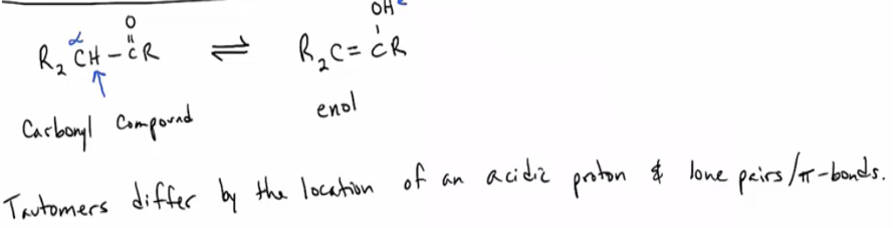 O OH
α
R₂CH-CR ⇌ R₂C=CR
Carbonyl Compound enol
Tautomers differ by the location of an acidic proton & lone pairs/π-bonds.